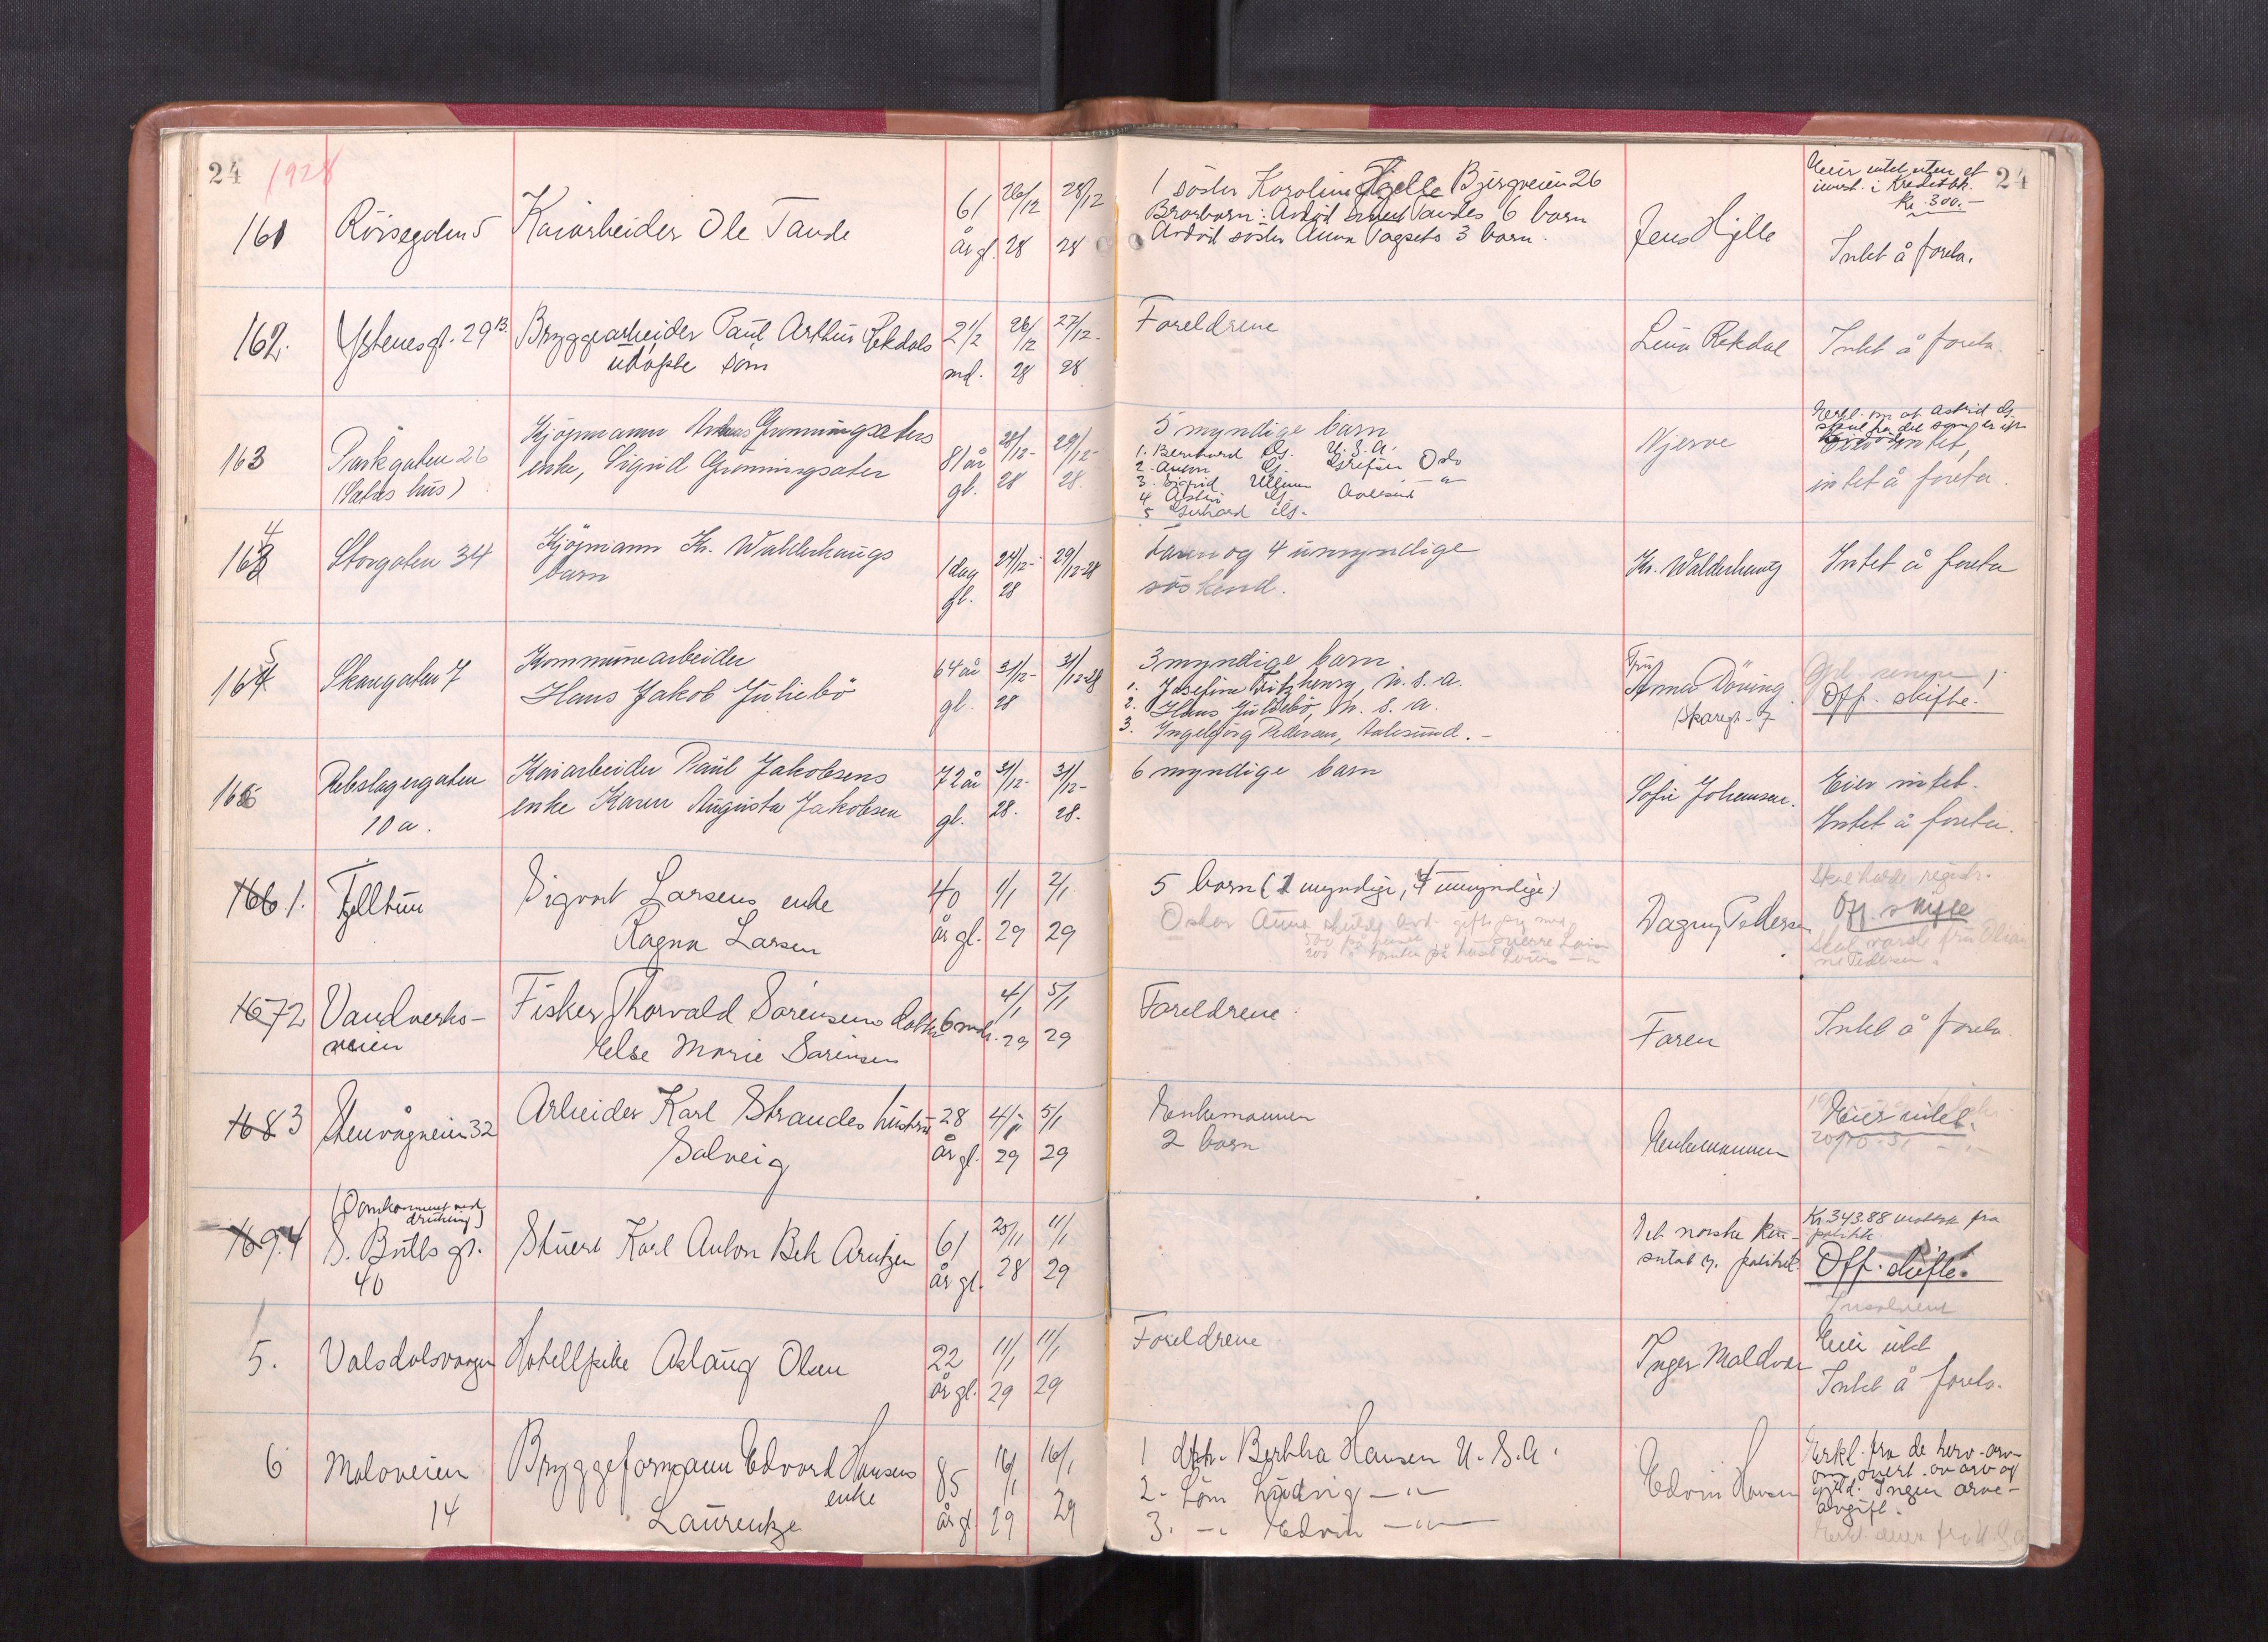 24 1928
24
161 Rörsegaten 5 Kaiarbeider Ole Tande 61 år gl. 26/12 28 28/12 28
1 söster Karoline Hjelle Bjørgveien 26
Brorbarn: Avdöd Tandes 6 barn
Avdöd söster Anna 3 barn.
Jens Hjelle
Eier intet uten et
innsk. i Kreditbk.
kr. 300.-
Intet å foreta.
162. Ystenesgt. 29 B. Bryggearbeider Paul Arthur Rekdals 2 1/2 md. 26/12 28 27/12- 28
udöpte sön
Foreldrene
Lina Rekdal
Intet å foreta.
163 Parkgaten 26
(Satres hus)
Kjöpmann Grønningsæters
enke, Sigrid Grønningsæter
81 år gl. 28/12- 28 29/12- 28.
5 myndige barn
1. Bernhard G. U.S.A.
2. Anton G. Grefsen Oslo
3. Sigrid Ullmann -"-
4 G. Aalesund
5 Gerhard
Njerve
Erkl. om at Astrid G.
intet,
intet å foreta.
164 Storgaten 34 Kjöpmann Kr. Walderhaugs
barn
1 dag gl. 24/12- 28 29/12-28
Faren og 4 umyndige
söskend.
Kr. Walderhaug
Intet å foreta
165 Skaregaten 7 Kommunearbeider
Hans Jakob Juliebö
64 år gl. 31/12- 28 31/12-28
3 myndige barn.
1. Josefine Fitzhenry, U.S.A.
2. Hans Juliebö, U.S.A.
3. Ingeborg Pedersen, Aalesund. -
Fru
Anna Döving
Skaregt. 7
Off. skifte.
166 Rebslagergaten
10 a.
Kaiarbeider Paul Jakobsens
enke Karen Augusta Jakobsen
72 år gl. 31/12- 28. 31/12- 28.
6 myndige barn
Sofie Johansen.
Eier intet.
Intet å foreta.
166 1. Fjelltun Sigvart Larsens enke
Ragna Larsen
40 år gl. 1/1 29 2/1 29
5 barn (1 myndige, 4 umyndige)
Oskar Anna
Dagny Pedersen
Off. skifte
167 2 Vandverks-
veien
Fisker Thorvald Sörensens datter
Else Marie Sörensen
6 mdr. 4/1 29 5/1 29
Foreldrene
Faren
Intet å foreta.
168 3 Stenvågveien 32 Arbeider Karl Strandes hustru
Solveig
28 år gl. 4/1 29 5/1 29
Enkemannen
2 barn
Enkemannen
Eier intet.
169. 4 (Omkommet ved
drukning)
S. Bulls gt.
40
Stuert Karl Anton Bek Arntzen
61 år gl. 25/11 28 11/1 29
Det norske kon-
sulat og. politiet.
Kr. 343.88 mottatt fra
politik.
Off. skifte.
Insolvent
5. Volsdalsvaagen Hotellpike Aslaug Olsen 22 år gl. 11/1 29 11/1 29
Foreldrene
Inger Moldvær
Eier intet
Intet å foreta.
6 Moloveien
14
Bryggeformann Edvard Hansens
enke
Laurentze
85 år gl. 16/1 29 16/1 29
1 dtr. Bertha Hansen U.S.A.
2. Sön Ludvig -"-
3. -" Edvin -"-
Edvin Hansen
Erkl. fra de herv. arv.
om overt. av arv og
gjeld. Ingen arve-
avgift.